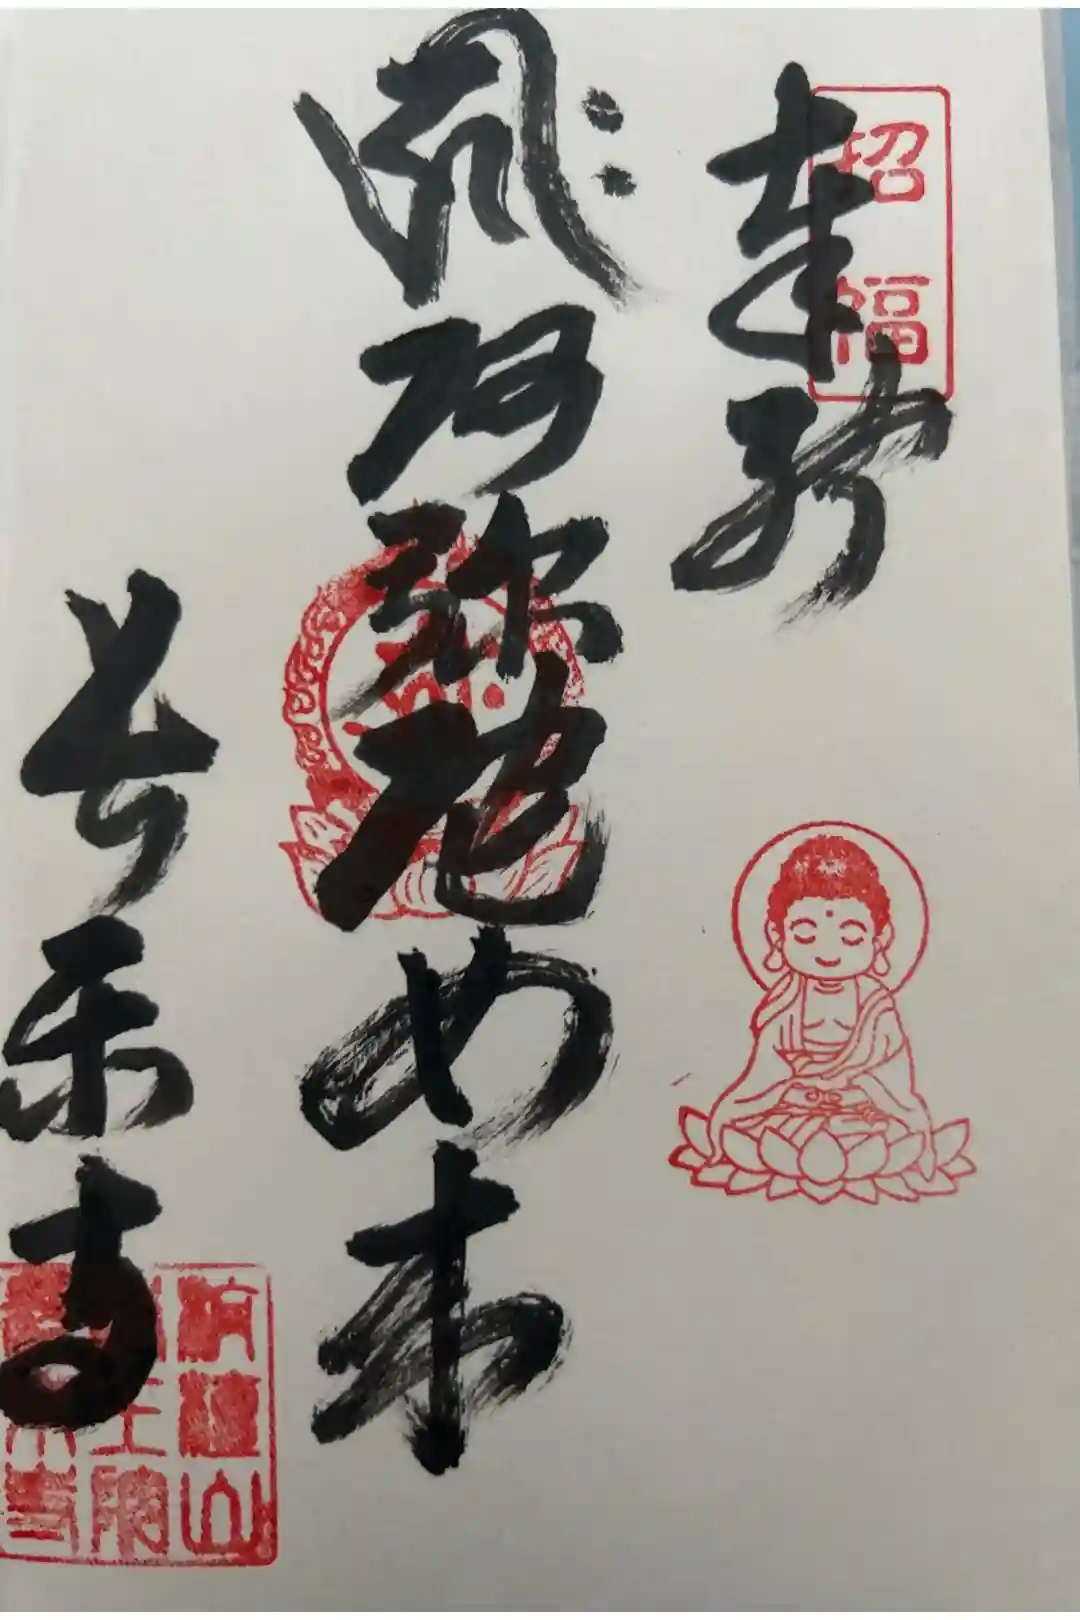 招福
奉拝
阿弥陀如来
長楽寺